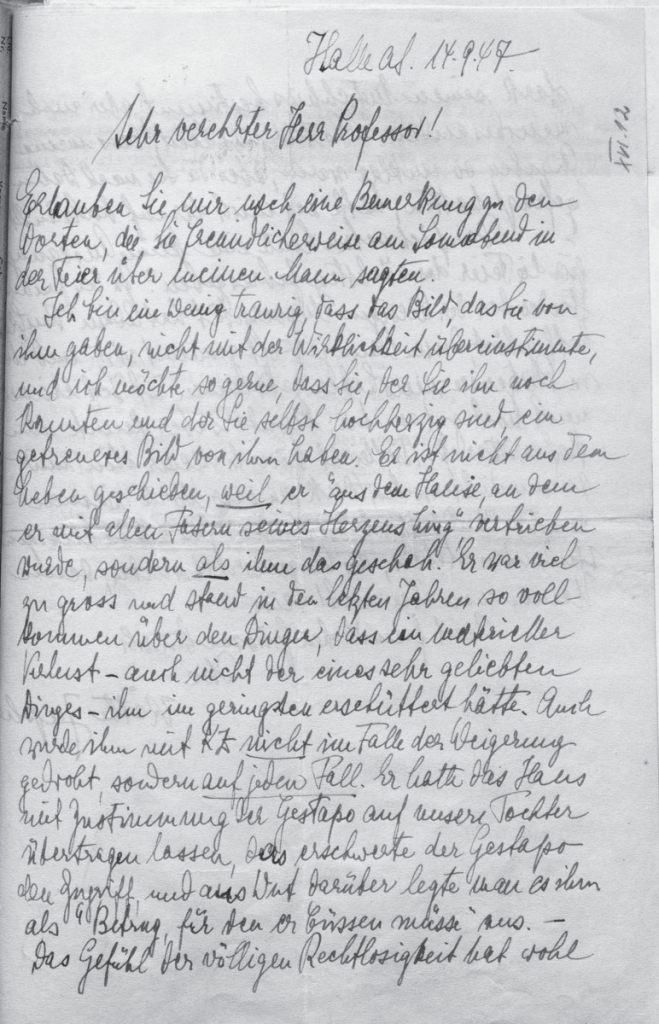 Halle a/S. 14.9.47
Sehr verehrter Herr Professor!
Erlauben Sie mir noch eine Bemerkung zu den
Worten, die Sie freundlicherweise am Sonnabend in
der Feier über meinen Mann sagten.
Ich bin ein wenig traurig, dass das Bild, das Sie von
ihm gaben, nicht mit der Wirklichkeit übereinstimmte,
und ich möchte so gerne, dass Sie, der Sie ihn noch
kannten und der Sie selbst hochherzig sind ein
getreueres Bild von ihm haben. Er ist nicht aus dem
Leben geschieden, weil er "aus dem Hause, an dem
er mit allen Fasern seines Herzens hing" vertrieben
wurde, sondern als ihm das geschah. Er war viel
zu gross und stand in den letzten Jahren so voll-
kommen über den Dingen, dass ein materieller
Verlust – auch nicht der eines sehr geliebten
Dinges – ihn im geringsten erschüttert hätte. Auch
wurde ihm mit KZ nicht im Falle der Weigerung
gedroht, sondern auf jeden Fall. Er hatte das Haus
mit Zustimmung der Gestapo auf unsere Tochter
übertragen lassen, das erschwerte der Gestapo
den Zugriff, und aus Wut darüber legte man es ihm
als "Betrug, für den er büssen müsse" aus. –
Das Gefühl der völligen Rechtlosigkeit hat wohl